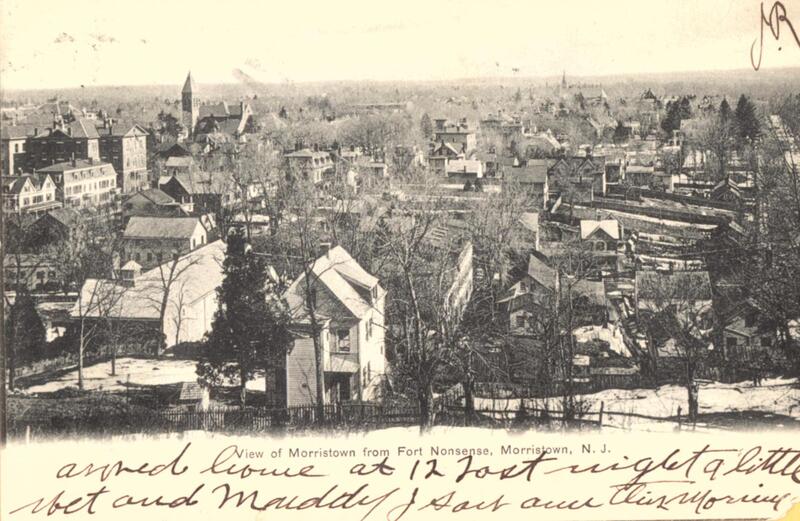 JR
View of Morristown from Fort Nonsense, Morristown, N. J.
arived home at 12 Last night a little
wet and Muddy I this Morning